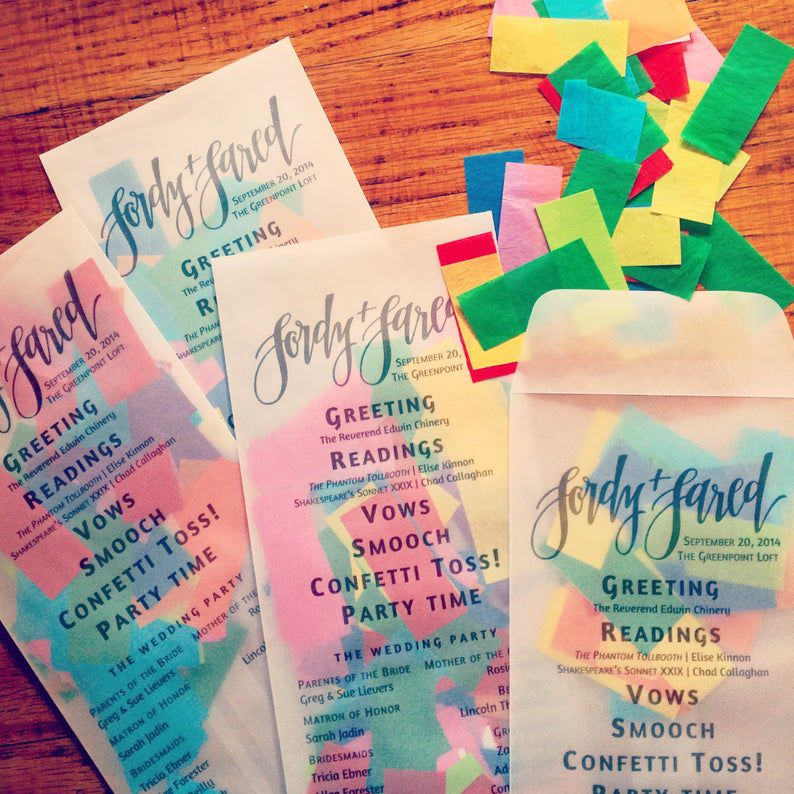 Jordy + Jared
September 20, 2014
The Greenpoint Loft
Greeting
The Reverend Edwin Chinery
Re
The Phantom
Shakespeare's
+ Jared
September 20, 2014
The Greenpoint Loft
Greeting
The Reverend Edwin Chinery
Readings
The Phantom Tollbooth | Elise Kinnon
Shakespeare's Sonnet XXIX | Chad Callaghan
Vows
Smooch
Confetti Toss!
Party time
The Wedding Party
Parents of the Bride
Mother of the
Greg & Sue Lievers
Matron of Honor
Lincoln
Sarah Jadin
Bridesmaids
Tricia Ebner
Forester
Jordy + Jared
September 20,
The Greenpoint
Greeting
The Reverend Edwin Chinery
Readings
The Phantom Tollbooth | Elise Kinnon
Shakespeare's Sonnet XXIX | Chad Callaghan
Vows
Smooch
Confetti Toss!
Party time
The Wedding Party
Parents of the Bride Mother of the
Greg & Sue Lievers Rosi
Matron of Honor Lincoln Th
Sarah Jadin
Bridesmaids
Tricia Ebner
Forester
Jordy + Jared
September 20, 2014
The Greenpoint Loft
Greeting
The Reverend Edwin Chinery
Readings
The Phantom Tollbooth | Elise Kinnon
Shakespeare's Sonnet XXIX | Chad Callaghan
Vows
Smooch
Confetti Toss!
Party time